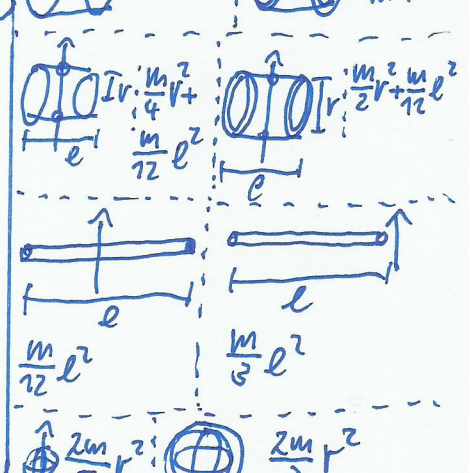 r
m/4 r² +
m/12 l²
l
r
m/2 r² + m/12 l²
l
l
m/12 l²
l
m/3 l²
2m r²
2m r²